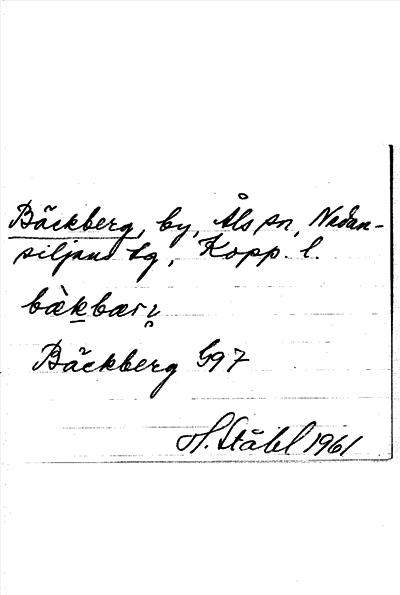 Bäckberg, by, Åls sn, Nedan-
siljans tg, Kopp. l.
Bäckberg G97
H. Ståhl 1961